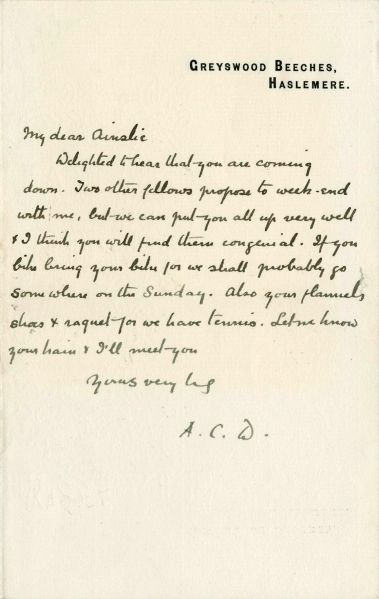 GREYSWOOD BEECHES,
HASLEMERE.
My dear Ainslie
Delighted to hear that you are coming
down. Two other fellows propose to week-end
with me, but we can put you all up very well
& I think you will find them congenial. If you
bike bring your bike for we shall probably go
somewhere on the Sunday. Also your flannels
shoes & raquet for we have tennis. Let me know
your train & I'll meet you
Yours very
A. C. D.